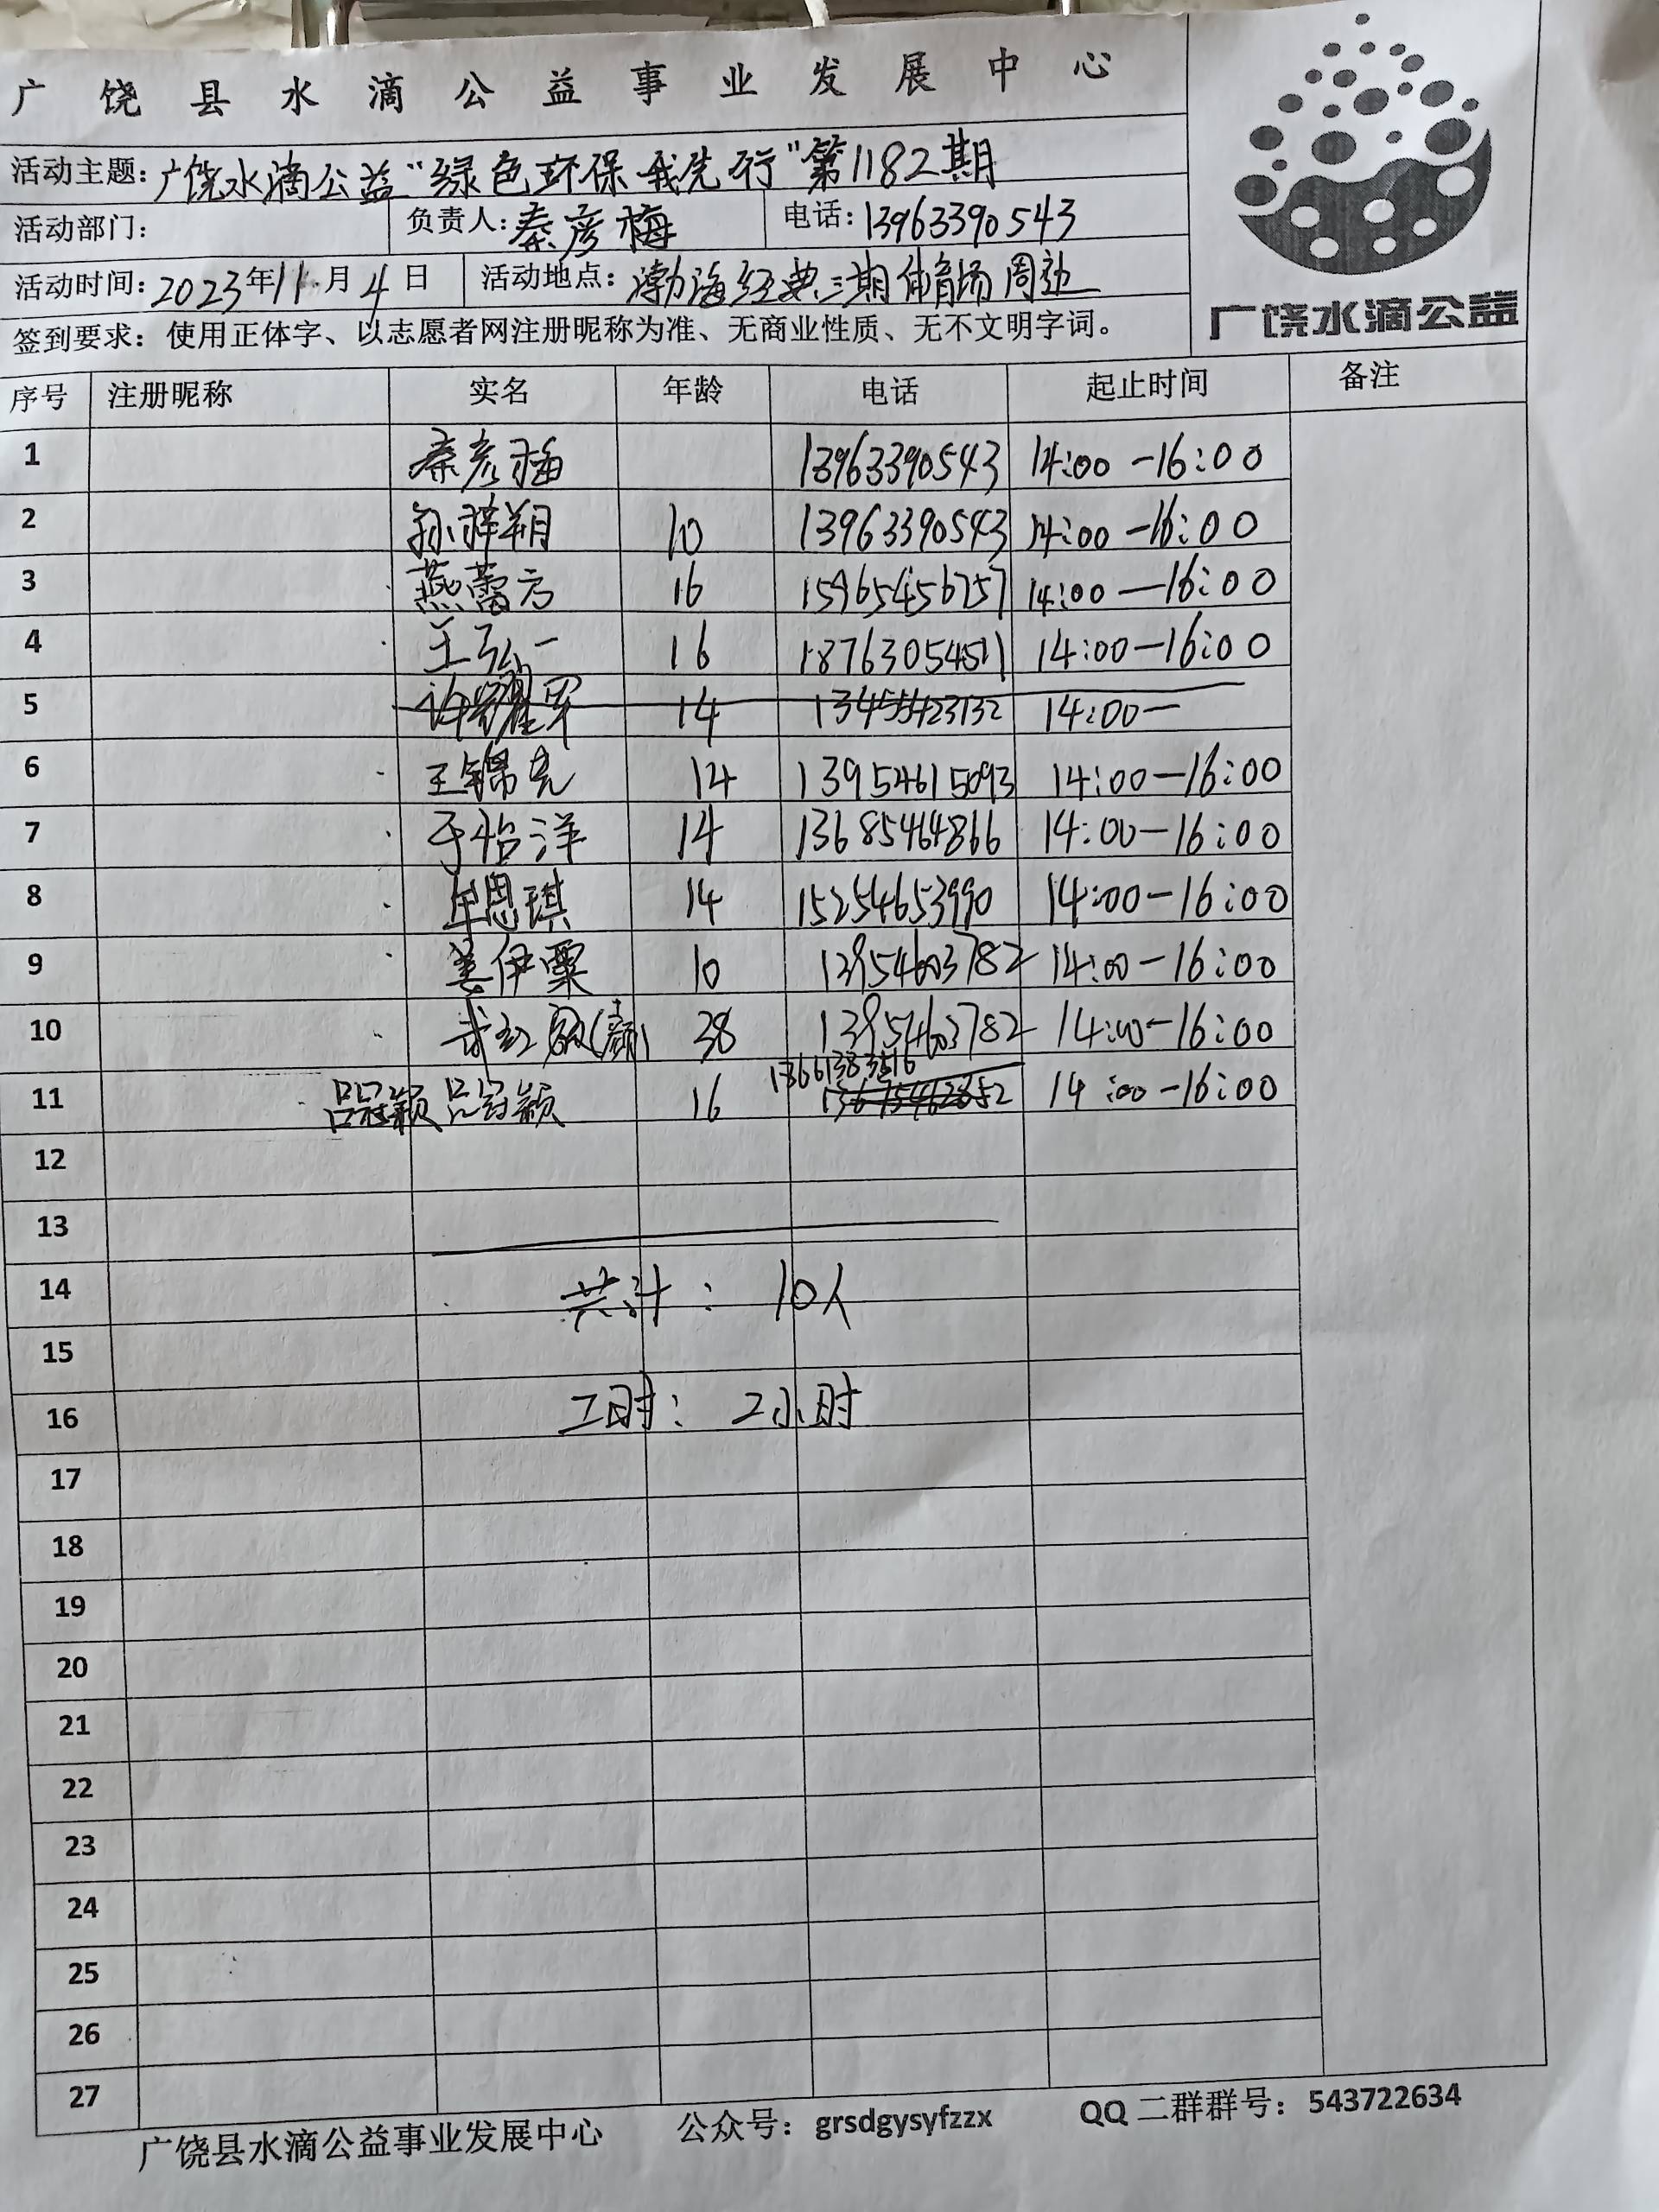 广饶县水滴公益事业发展中心
活动主题：广饶水滴公益“绿色环保我先行”第1182期
活动部门： 负责人：秦彦梅 电话：13963390543
活动时间：2023年11月4日 活动地点：渤海经典三期体育场周边
广饶水滴公益
签到要求：使用正体字、以志愿者网注册昵称为准、无商业性质、无不文明字词。
序号 注册昵称 实名 年龄 电话 起止时间 备注
1 秦彦梅 13963390543 14:00-16:00
2 孙祥朔 10 13963390543 14:00-16:00
3 燕蕾方 16 15965456757 14:00-16:00
4 王弘一 16 18763054511 14:00-16:00
5 14 14:00-
6 王锦亮 14 13954615093 14:00-16:00
7 于怡洋 14 13685464866 14:00-16:00
8 牟思琪 14 15254653990 14:00-16:00
9 姜伊粟 10 13954603782 14:00-16:00
10 武红 38 13954603782 14:00-16:00
11 吕冠颖 吕冠颖 16 14:00-16:00
12
13
14 共计：10人
15
16 工时：2小时
17
18
19
20
21
22
23
24
25
26
27
广饶县水滴公益事业发展中心 公众号：grsdgysyfzzx QQ二群群号：543722634